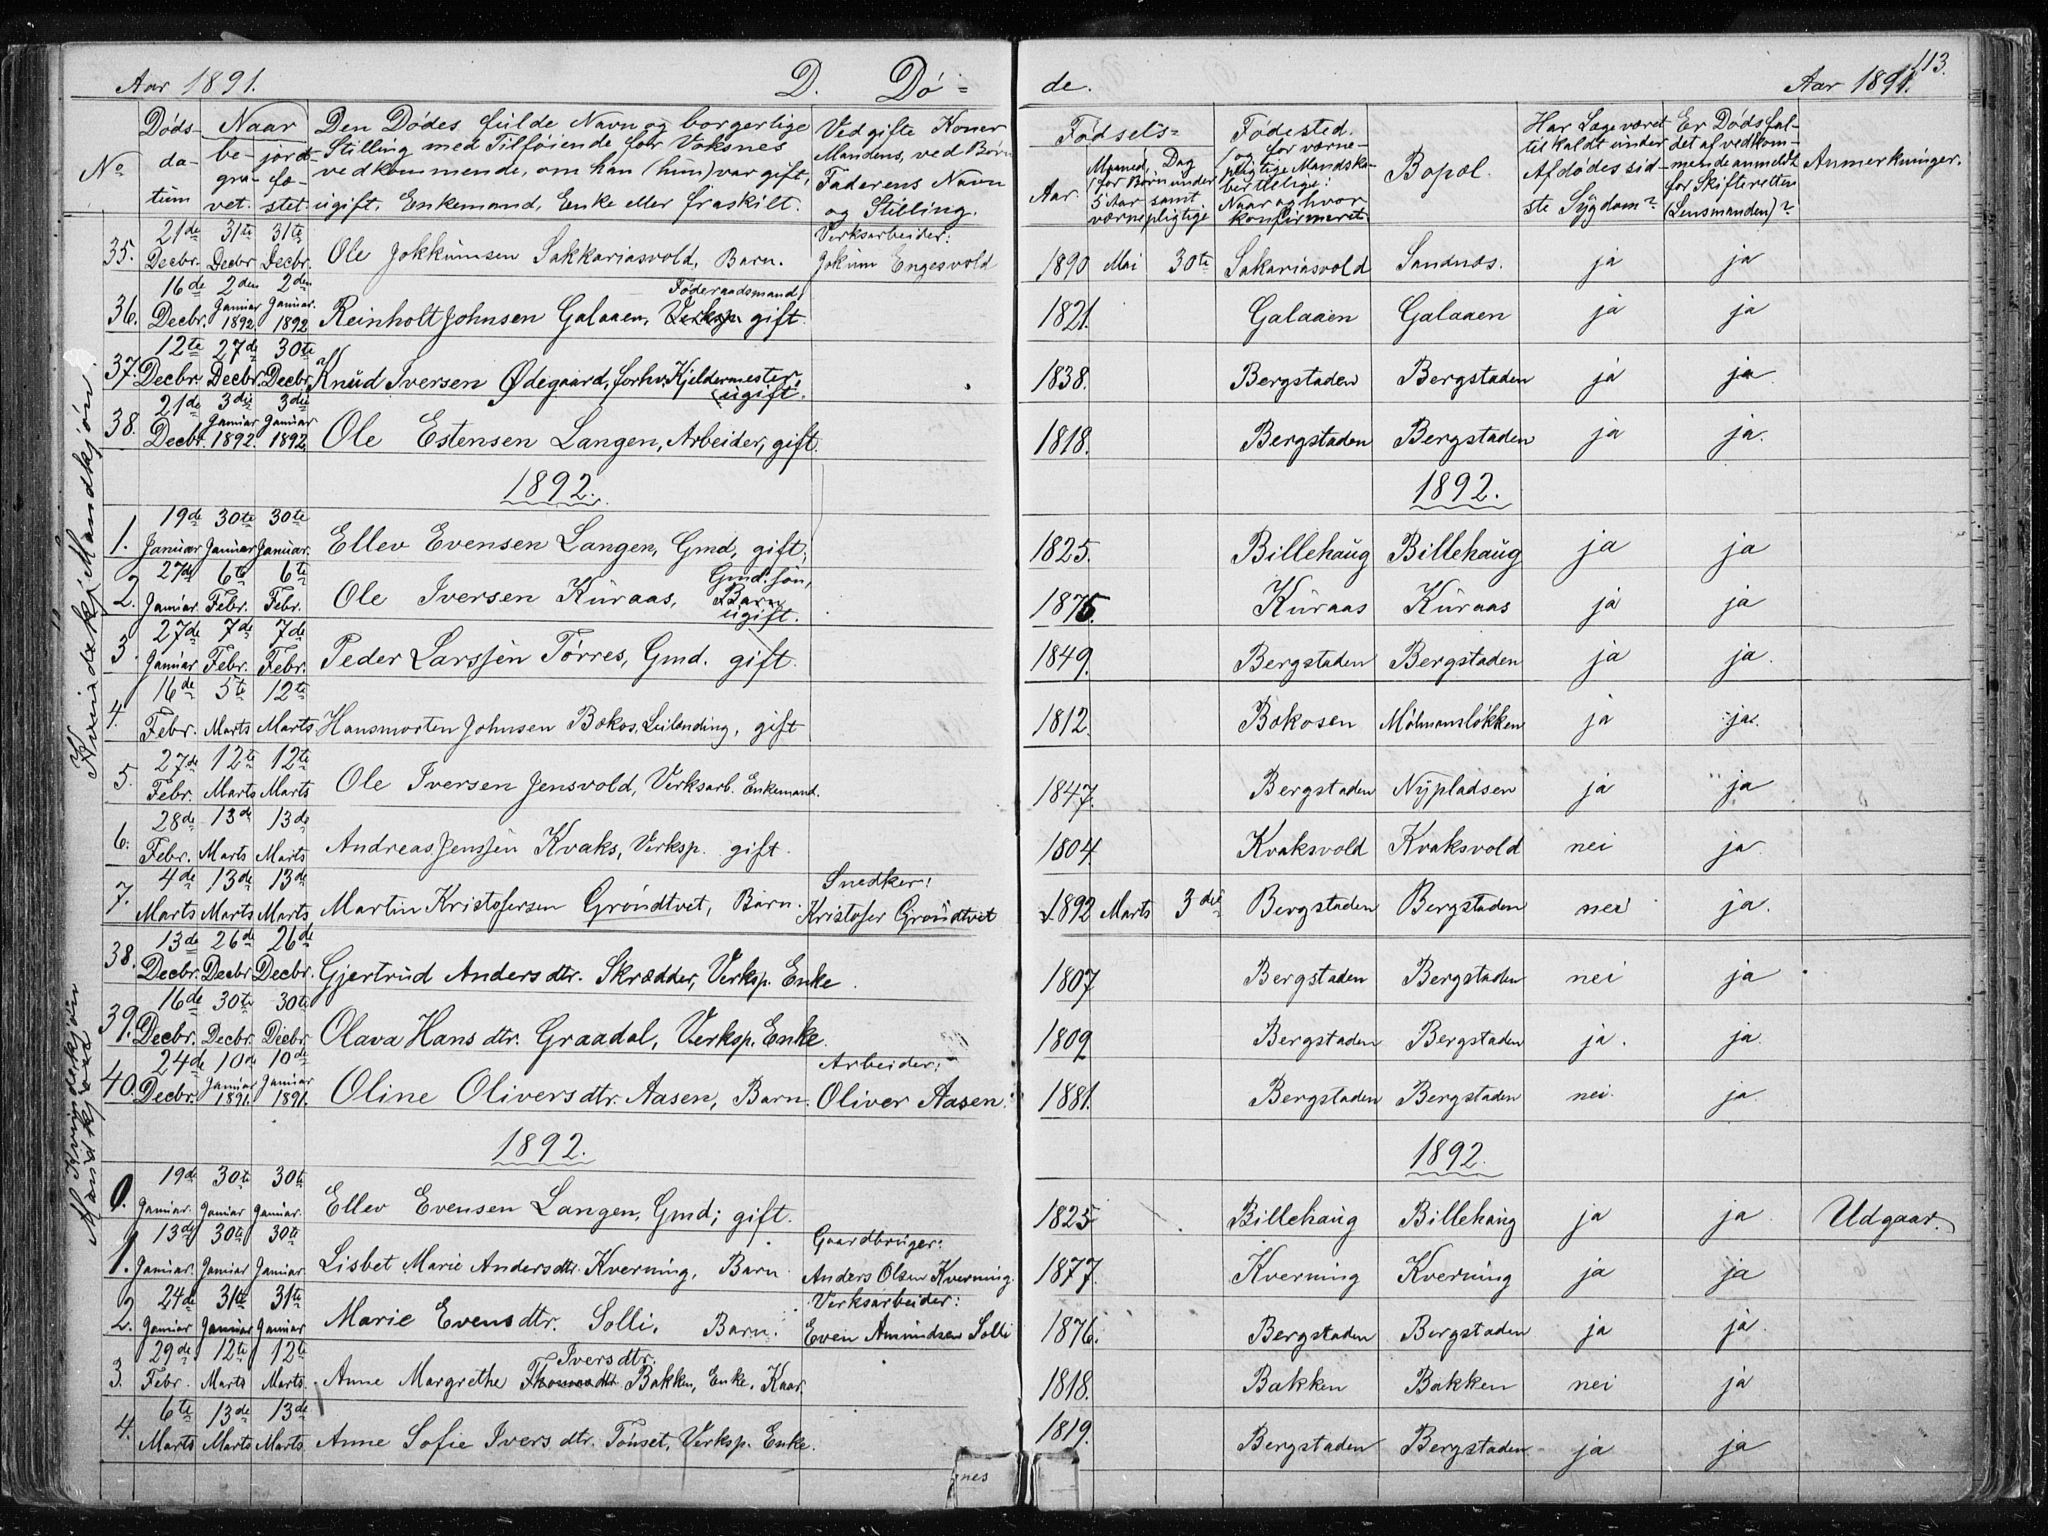 Aar 1891. D. Dø= de. Aar 1891. 113.
No Dødsdatum Naar begravet. jordfæstet Den Dødes fulde Navn og borgerlige Stilling med Tilføiende for Voksnes vedkommende, om han (hun) var gift, ugift, Enkemand, Enke eller fraskilt. Ved gifte Koner Mandens, ved Børn Faderens Navn og Stilling. Fødsels= Aar. Maaned, Dag (for Børn under 5 Aar samt værnepligtige Fødested. (og for værnepligtige Mandskaber tillige: Naar og hvor konfirmeret Bopæl. Har Læge været tilkaldt under Afdødes sidste Sygdom? Er Dødsfaldet af vedkommende anmeldt for Skifteretten (Lensmanden)? Anmerkninger.
Kvindekj Mandkjøn.
35. 21de Decbr. 31te Decbr 31te Decbr. Ole Jokkumsen Sakkariasvold, Barn. Verksarbeider: Jokum Engesvold 1890 Mai 30te Sakariasvold Sandnæs. ja ja
36. 16de Decbr. 2den Januar 1892 2den Januar. 1892 Reinholt Johnsen Galaaen, Verksp. Føderaadsmand, gift. 1821. Galaaen Galaaen ja ja
37. 12te Decbr. 27de Decbr. 30te Decbr. Knud Iversen Ødegaard, forhv. Kjeldermester, ugift. 1838. Bergstaden Bergstaden ja ja
38. 21de Decbr. 3die Januar 1892. 3die Januar 1892. Ole Estensen Langen, Arbeider, gift. 1818. Bergstaden Bergstaden ja ja.
1892. 1892.
1. 19de Januar 30te Januar 30te Januar. Ellev Evensen Langen, Gmd, gift, 1825. Billehaug Billehaug ja ja
2. 27de Januar. 6te Febr. 6te Febr. Ole Iversen Kuraas, Gmd. søn, Barn ugift. 1875. Kuraas Kuraas ja ja
3. 27de Januar 7de Febr. 7de Febr. Peder Larssen Tørres, Gmd. gift. 1849. Bergstaden Bergstaden ja ja.
4. 16de Febr. 5te Marts 12te Marts Hansmorten Johnsen Bokos, Leilending, gift 1812. Bokosen Mølmansløkken ja ja.
5. 27de Febr. 12te Marts 12te Marts Ole Iversen Jensvold, Verksarb. Enkemand. 1847. Bergstaden Nypladsen ja ja
6. 28de Febr. 13de Marts 13de Marts Andreas Jenssen Kvaks, Verksp. gift. 1804 Kvaksvold Kvaksvold nei ja
7. 4de Marts 13de Marts 13de Marts Martin Kristofersen Grøndtvet, Barn. Snedker: Kristofer Grøndtvet 1892 Marts 3die Bergstaden Bergstaden nei ja.
M Kvindekjøn Mandkjøn
38. 13de Decbr. 26de Decbr 26de Decbr. Gjertrud Andersdtr. Skrædder, Verksp. Enke. 1807 Bergstaden Bergstaden nei ja
39. 16de Decbr. 30te Decbr. 30te Decbr. Olava Hansdtr. Graadal, Verksp. Enke. 1809 Bergstaden Bergstaden ja. ja.
40. 24de Decbr. 10de Januar 1891. 10de Januar 1891. Oline Oliversdtr. Aasen, Barn. Arbeider: Oliver Aasen. 1881. Bergstaden Bergstaden nei. ja
1892. 1892.
0. 19de Januar. 30te Januar. 30te Januar. Ellev Evensen Langen, Gmd; gift. 1825 Billehaug Billehaug ja ja Udgaar.
1. 13de Januar. 30te Januar 30te Januar. Lisbet Marie Andersdtr. Kverning, Barn. Gaardbruger: Anders Olsen Kverning. 1877. Kverning Kverning ja ja
2. 24de Januar 31te Januar 31te Januar Marie Evensdtr. Solli, Barn. Verksarbeider: Even Amundsen Solli 1876. Bergstaden Bergstaden ja ja.
3. 29de Febr. 12te Marts 12te Marts. Anne Margrethe Thomasdtr Iversdtr. Bakken, Enke, Kaar 1818. Bakken Bakken nei ja
4. 6te Marts 13de Marts 13de Marts. Anne Sofie Iversdtr. Tønset, Verksp. Enke. 1819. Bergstaden Bergstaden ja ja
nes